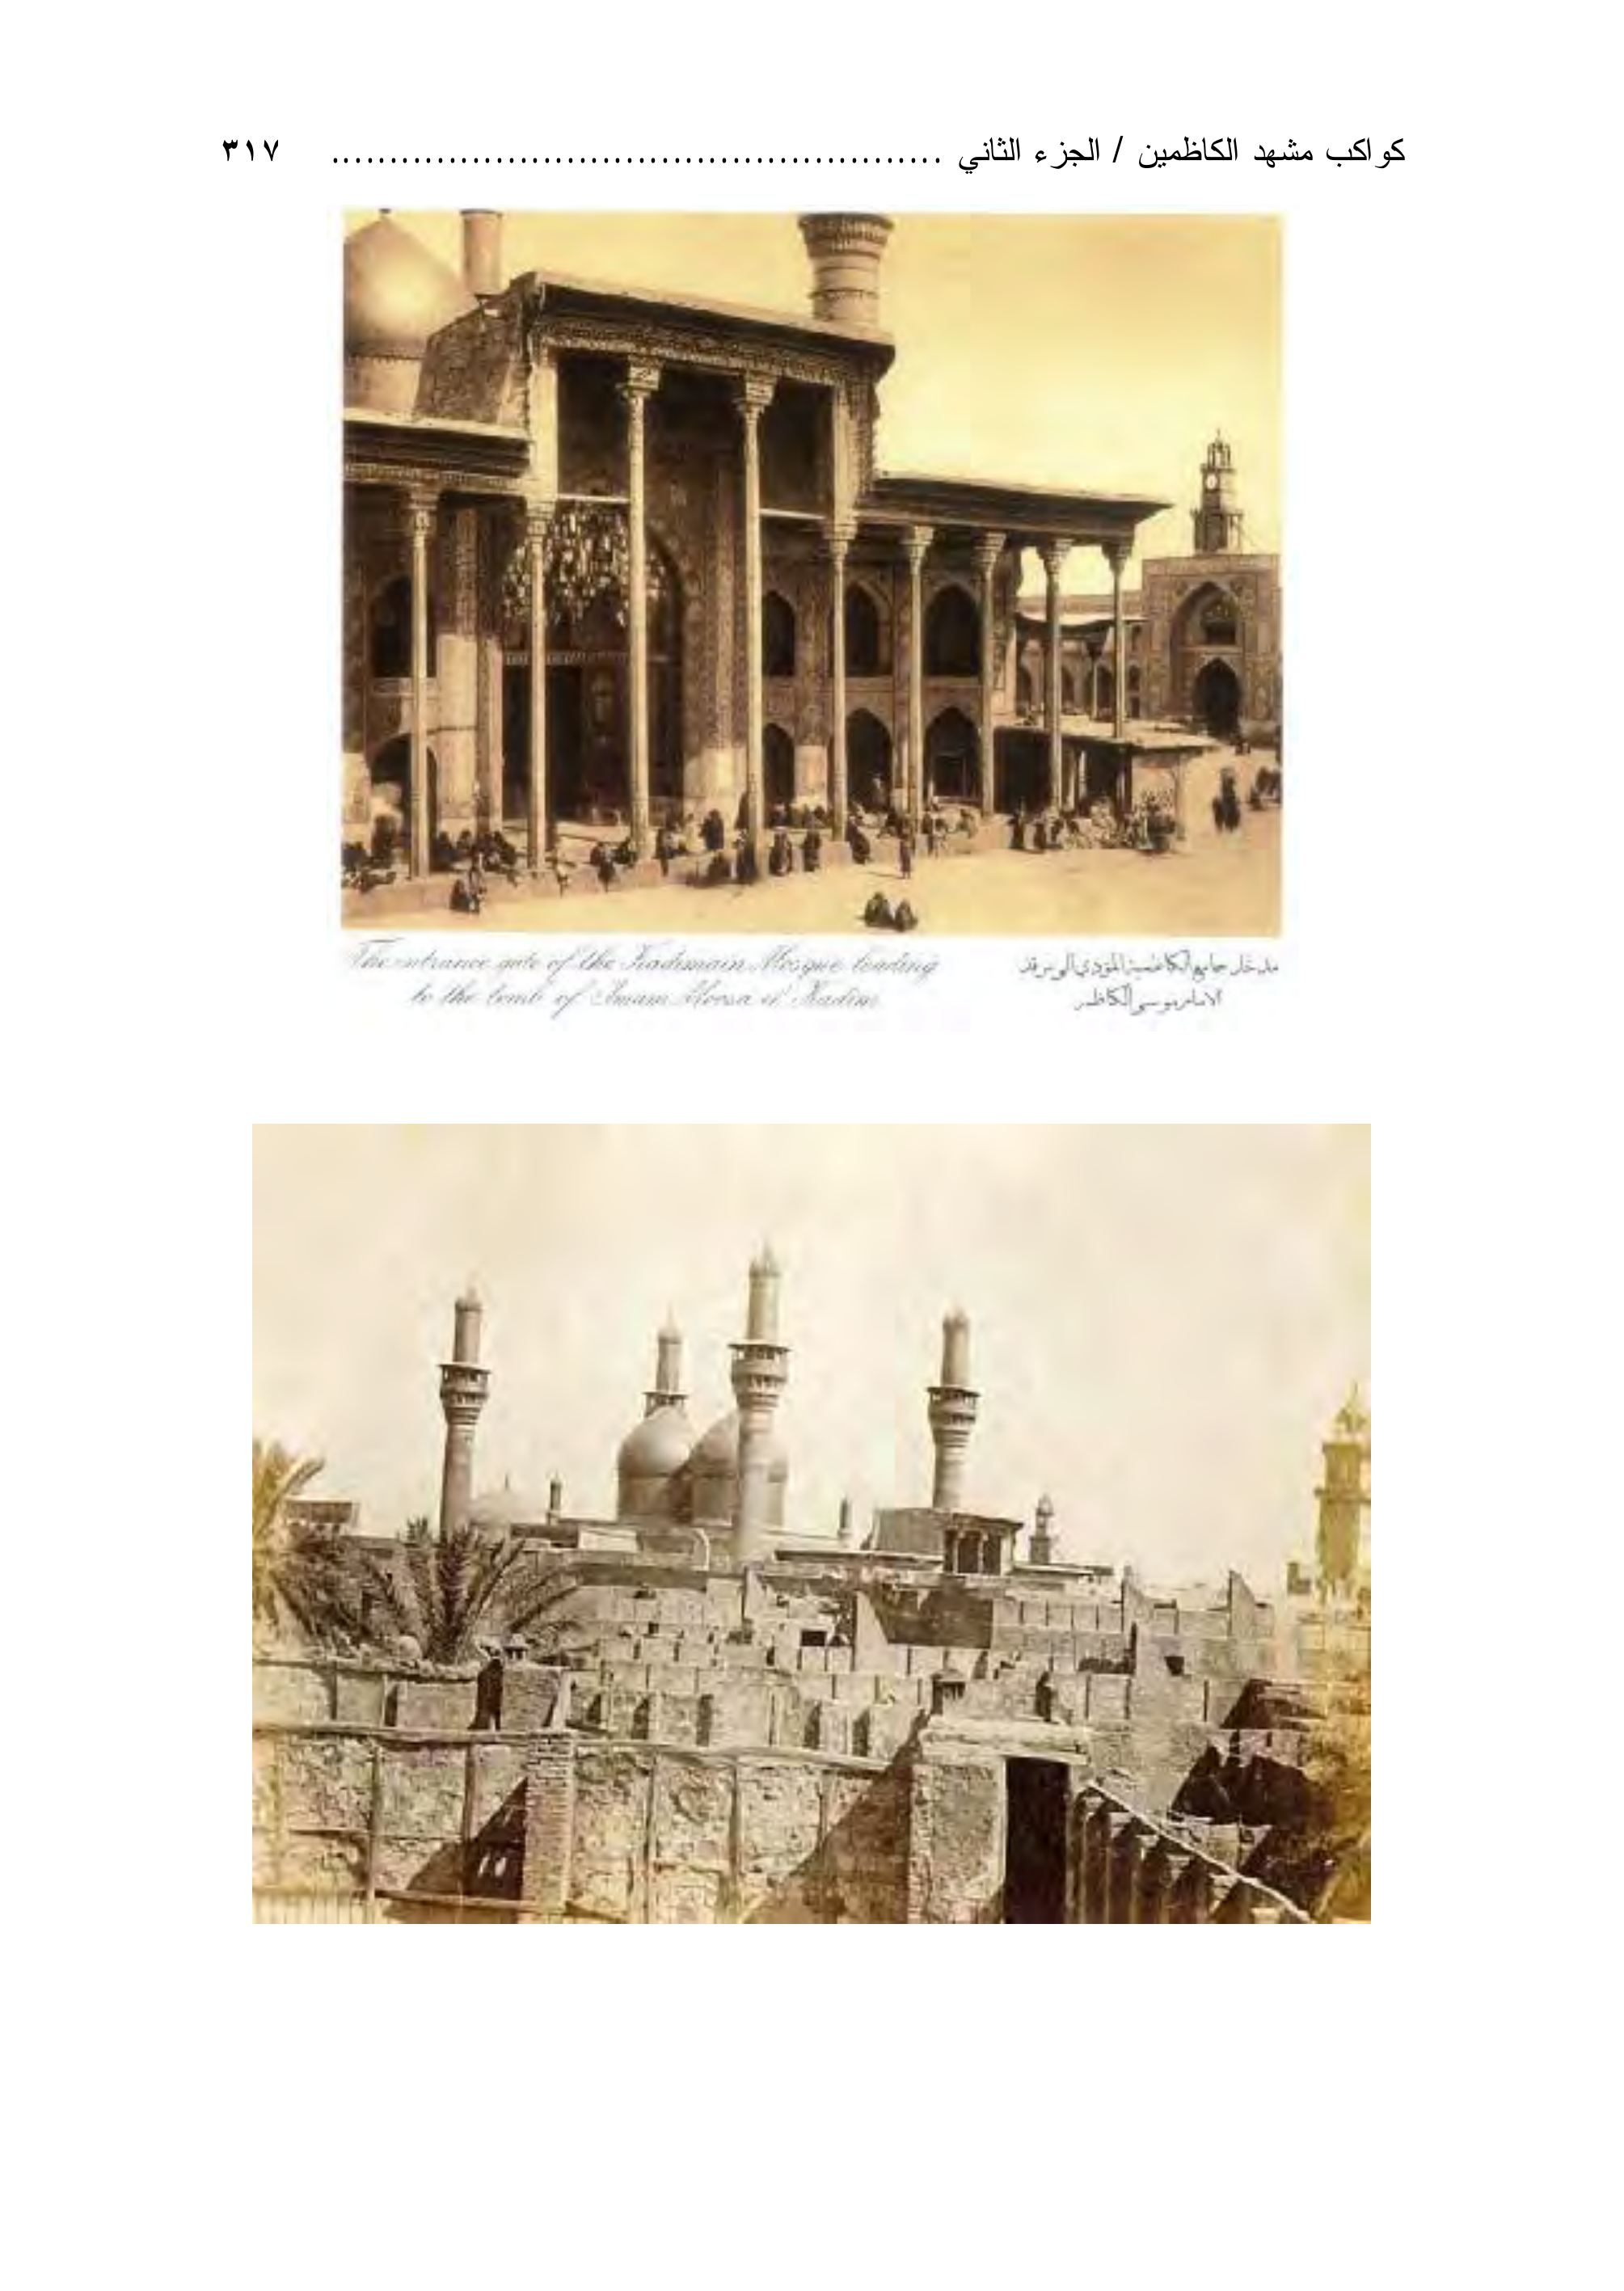 كواكب مشهد الكاظمين / الجزء الثاني .................................................... ٣١٧
The entrance gate of the Kadimain Mosque leading
to the tomb of Imam Moosa el Kadim
مدخل جامع الكاظمية المؤدي الى مرقد
الامام موسى الكاظم